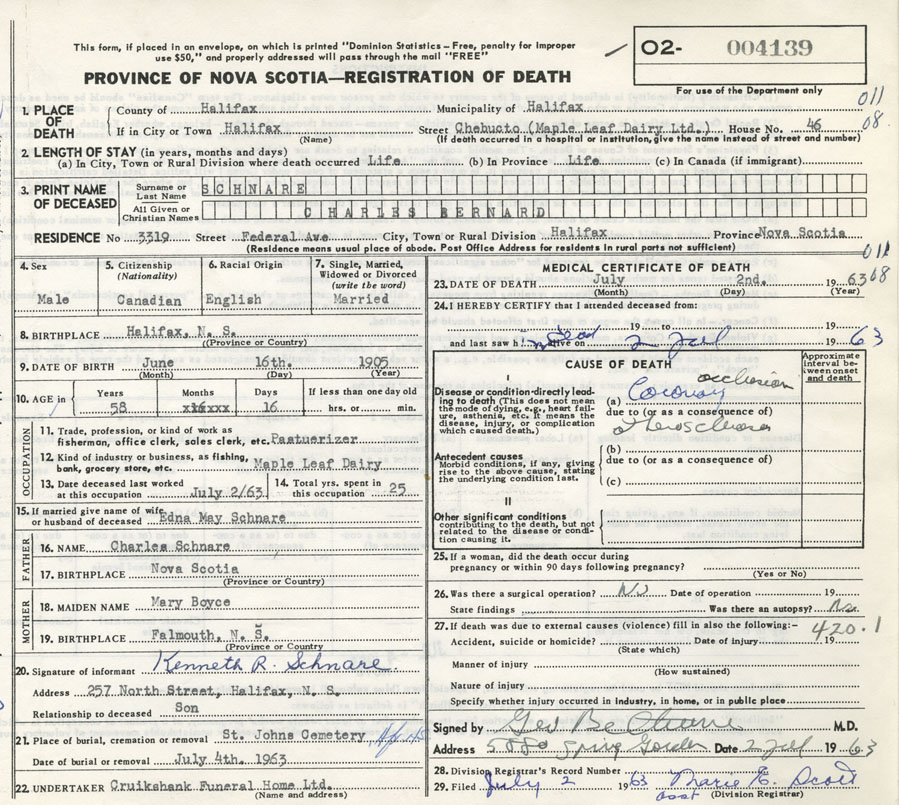 This form, if placed in an envelope, on which is printed "Dominion Statistics – Free, penalty for improper
use $50," and properly addressed will pass through the mail "FREE"
O2- 004139
For use of the Department only
PROVINCE OF NOVA SCOTIA—REGISTRATION OF DEATH
011
08
1. PLACE OF DEATH
County of Halifax Municipality of Halifax
If in City or Town Halifax Street Chebucto (Maple Leaf Dairy Ltd.) House No. 46
(Name) (If death occurred in a hospital or institution, give the name instead of street and number)
2. LENGTH OF STAY (in years, months and days)
(a) In City, Town or Rural Division where death occurred Life (b) In Province Life (c) In Canada (if immigrant)
3. PRINT NAME OF DECEASED
Surname or Last Name SCHNARE
All Given or Christian Names CHARLES BERNARD
RESIDENCE No 3319 Street Federal Ave City, Town or Rural Division Halifax Province Nova Scotia
(Residence means usual place of abode. Post Office Address for residents in rural parts not sufficient)
011
08
4. Sex Male
5. Citizenship (Nationality) Canadian
6. Racial Origin English
7. Single, Married, Widowed or Divorced (write the word) Married
8. BIRTHPLACE Halifax, N. S.
(Province or Country)
9. DATE OF BIRTH June 16th. 1905
(Month) (Day) (Year)
10. AGE in Years 58 Months Days 16 If less than one day old hrs. or min.
OCCUPATION
11. Trade, profession, or kind of work as
fisherman, office clerk, sales clerk, etc. Pastuerizer
12. Kind of industry or business, as fishing,
bank, grocery store, etc. Maple Leaf Dairy
13. Date deceased last worked at this occupation July 2/63
14. Total yrs. spent in this occupation 25
15. If married give name of wife
or husband of deceased Edna May Schnare
FATHER
16. NAME Charles Schnare
17. BIRTHPLACE Nova Scotia
(Province or Country)
MOTHER
18. MAIDEN NAME Mary Boyce
19. BIRTHPLACE Falmouth, N. S.
(Province or Country)
20. Signature of informant Kenneth R. Schnare
Address 257 North Street, Halifax, N. S.
Relationship to deceased Son
21. Place of burial, cremation or removal St. Johns Cemetery
Date of burial or removal July 4th. 1963
22. UNDERTAKER Cruikshank Funeral Home Ltd.
(Name and address)
MEDICAL CERTIFICATE OF DEATH
23. DATE OF DEATH July 2nd. 1963
(Month) (Day) (Year)
24. I HEREBY CERTIFY that I attended deceased from:
19 to 19
and last saw h alive on 2 Jul 1963
Dead
CAUSE OF DEATH
Approximate interval between onset and death
I
Disease or condition directly leading to death (This does not mean the mode of dying, e.g., heart failure, asthenia, etc. It means the disease, injury, or complication which caused death.)
(a) Coronary occlusion
due to (or as a consequence of)
Antecedent causes
Morbid conditions, if any, giving rise to the above cause, stating the underlying condition last.
(b)
due to (or as a consequence of)
(c)
II
Other significant conditions
contributing to the death, but not related to the disease or condition causing it.
25. If a woman, did the death occur during
pregnancy or within 90 days following pregnancy?
(Yes or No)
26. Was there a surgical operation? No Date of operation 19
State findings Was there an autopsy? No.
27. If death was due to external causes (violence) fill in also the following:- 420.1
Accident, suicide or homicide? Date of injury 19
(State which)
Manner of injury
(How sustained)
Nature of injury
Specify whether injury occurred in industry, in home, or in public place
Signed by M.D.
Address 5880 Spring Garden Date 2 Jul 1963
28. Division Registrar's Record Number
29. Filed July 2 1963 Marie E. Scott
asst (Division Registrar)